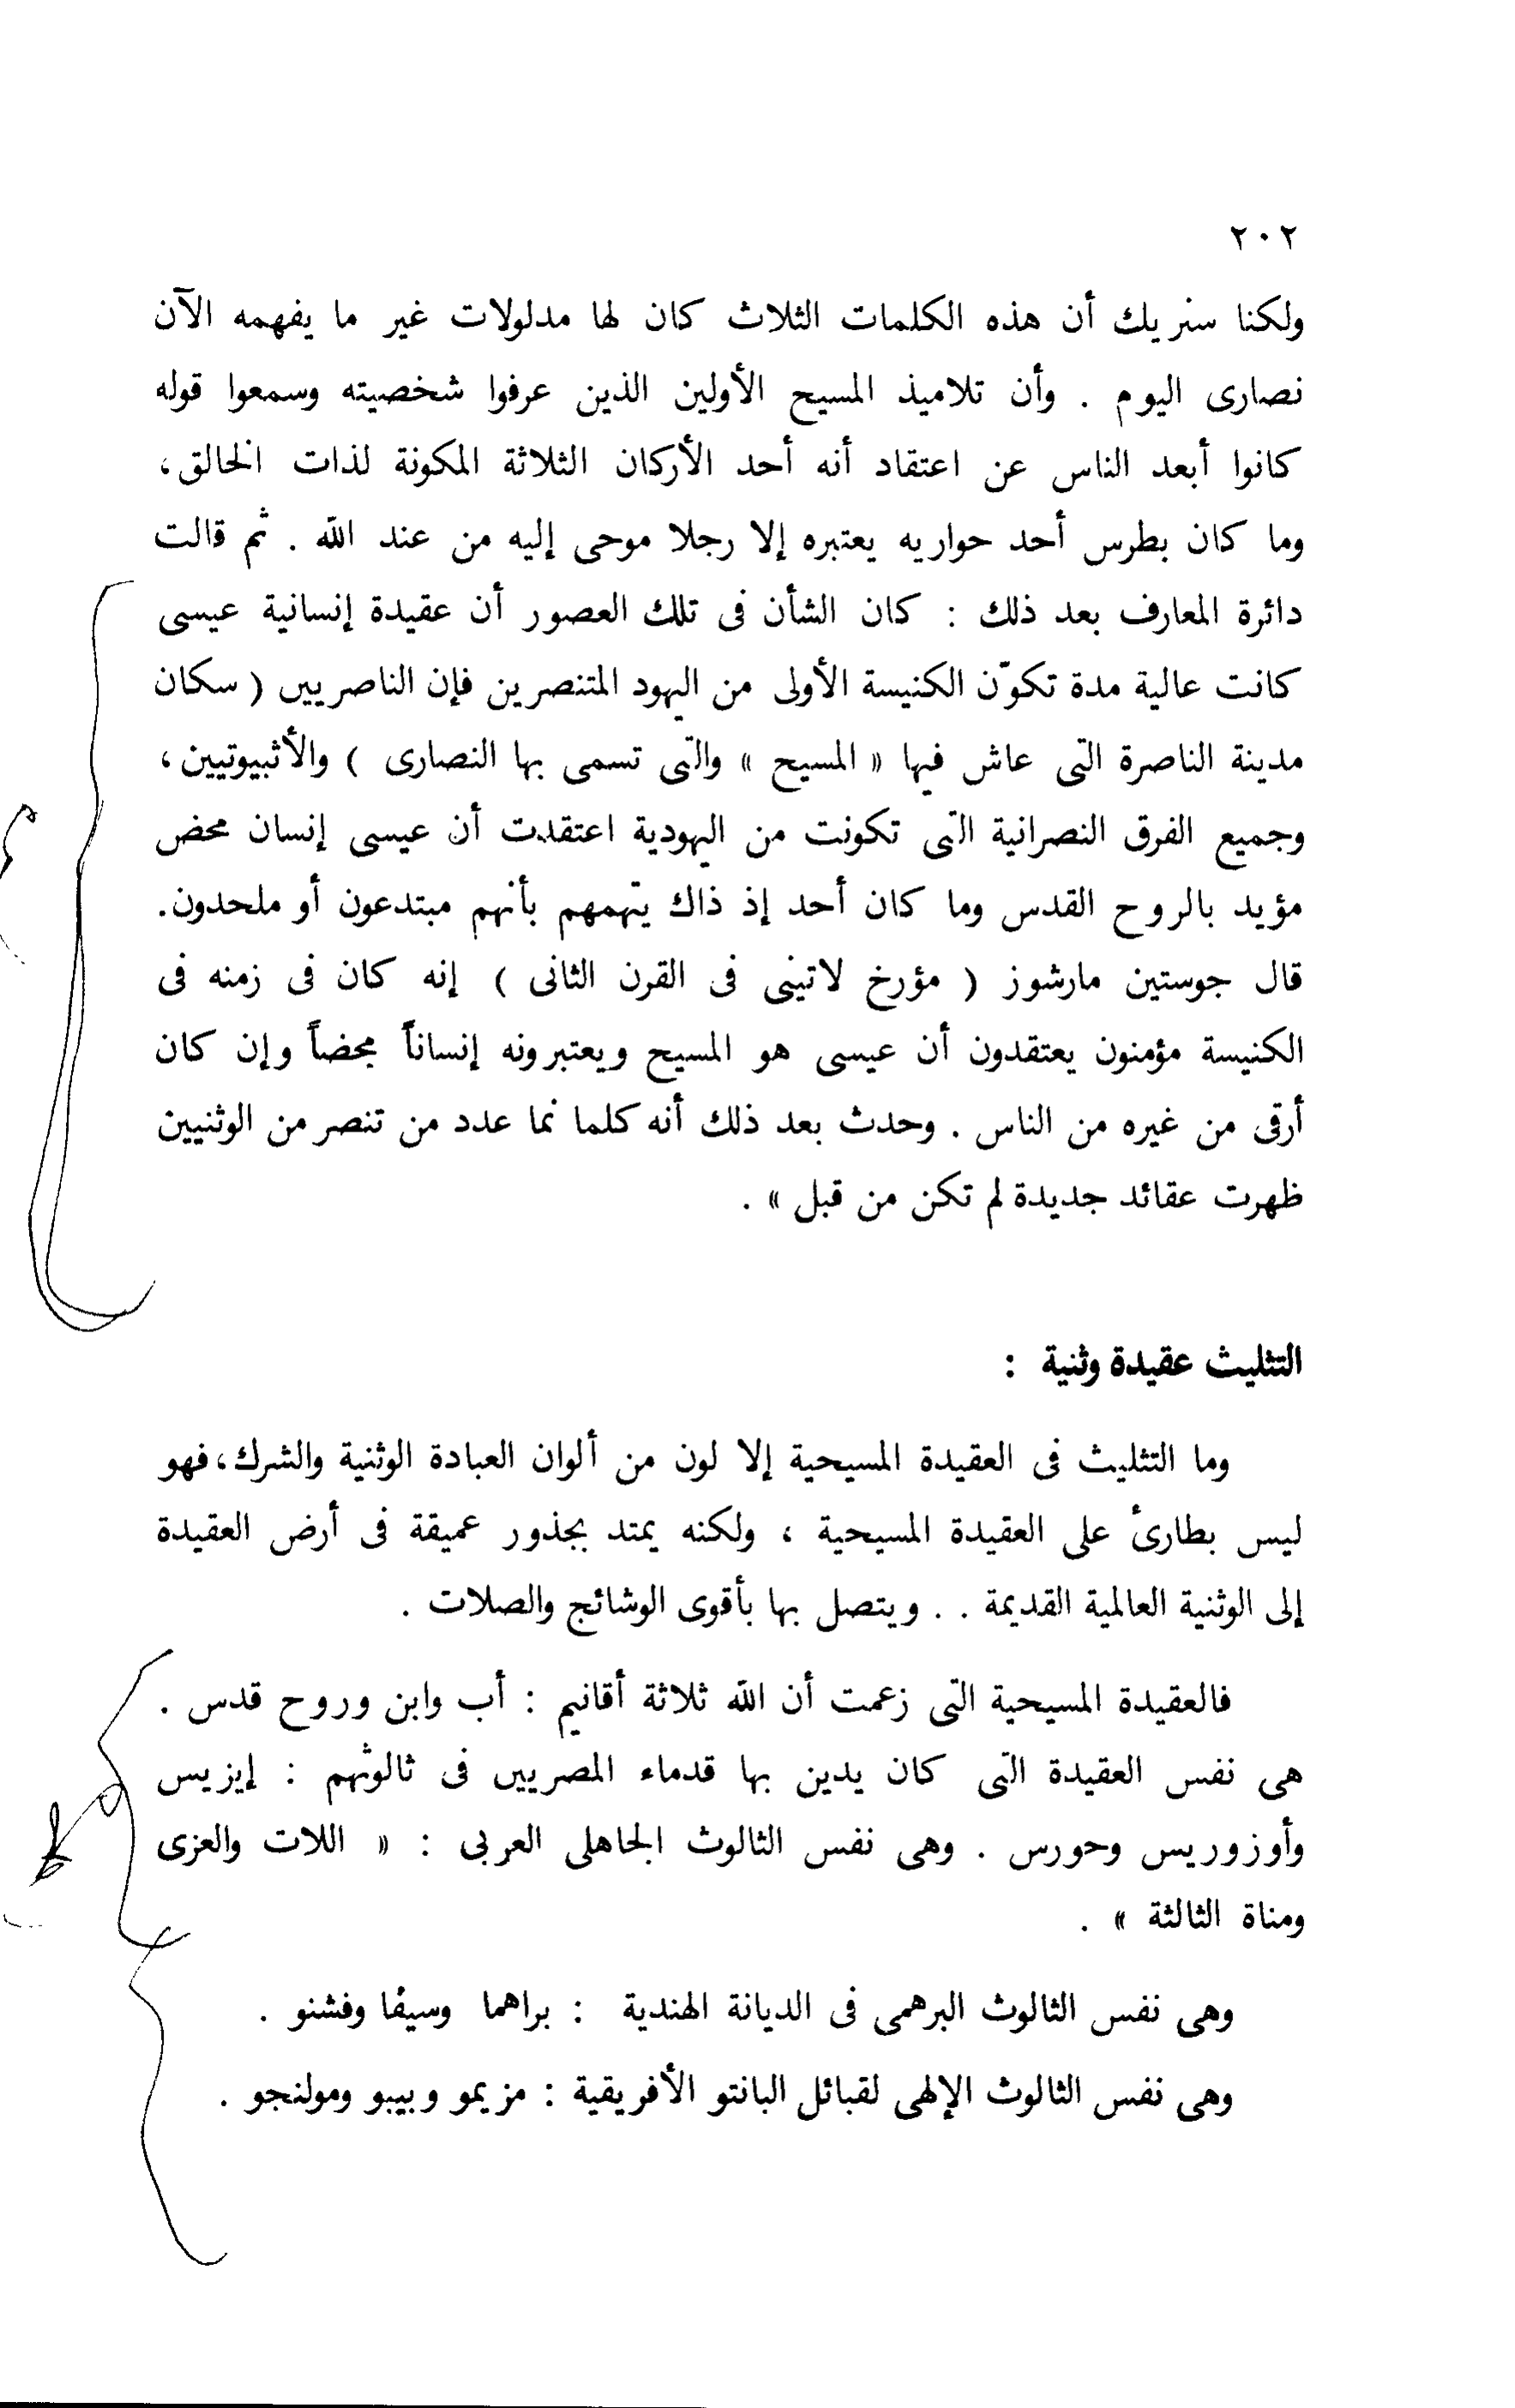 ٢٠٢
ولكنا سنريك أن هذه الكلمات الثلاث كان لها مدلولات غير ما يفهمه الآن
نصارى اليوم . وأن تلاميذ المسيح الأولين الذين عرفوا شخصيته وسمعوا قوله
كانوا أبعد الناس عن اعتقاد أنه أحد الأركان الثلاثة المكونة لذات الخالق،
وما كان بطرس أحد حواريه يعتبره إلا رجلا موحى إليه من عند الله . ثم قالت
دائرة المعارف بعد ذلك : كان الشأن فى تلك العصور أن عقيدة إنسانية عيسى
كانت عالية مدة تكوّن الكنيسة الأولى من اليهود المتنصرين فإن الناصريين ( سكان
مدينة الناصرة التى عاش فيها « المسيح » والتى تسمى بها النصارى ) والأثبيوتيين،
وجميع الفرق النصرانية التى تكونت من اليهودية اعتقدت أن عيسى إنسان محض
مؤيد بالروح القدس وما كان أحد إذ ذاك يتهمهم بأنهم مبتدعون أو ملحدون.
قال جوستين مارشوز ( مؤرخ لاتينى فى القرن الثانى ) إنه كان فى زمنه فى
الكنيسة مؤمنون يعتقدون أن عيسى هو المسيح ويعتبرونه إنساناً محضاً وإن كان
أرقى من غيره من الناس . وحدث بعد ذلك أنه كلما نما عدد من تنصر من الوثنيين
ظهرت عقائد جديدة لم تكن من قبل » .
التثليث عقيدة وثنية :
وما التثليث فى العقيدة المسيحية إلا لون من ألوان العبادة الوثنية والشرك، فهو
ليس بطارئ على العقيدة المسيحية ، ولكنه يمتد بجذور عميقة فى أرض العقيدة
إلى الوثنية العالمية القديمة . . ويتصل بها بأقوى الوشائج والصلات .
فالعقيدة المسيحية التى زعمت أن الله ثلاثة أقانيم : أب وابن وروح قدس .
هى نفس العقيدة التى كان يدين بها قدماء المصريين فى ثالوثهم : إيزيس
وأوزوريس وحورس . وهى نفس الثالوث الجاهلى العربى : « اللات والعزى
ومناة الثالثة » .
وهى نفس الثالوث البرهمى فى الديانة الهندية : براهما وسيفا وفشنو .
وهى نفس الثالوث الإلهى لقبائل البانتو الأفريقية : مزيمو وبيبو ومولنجو .